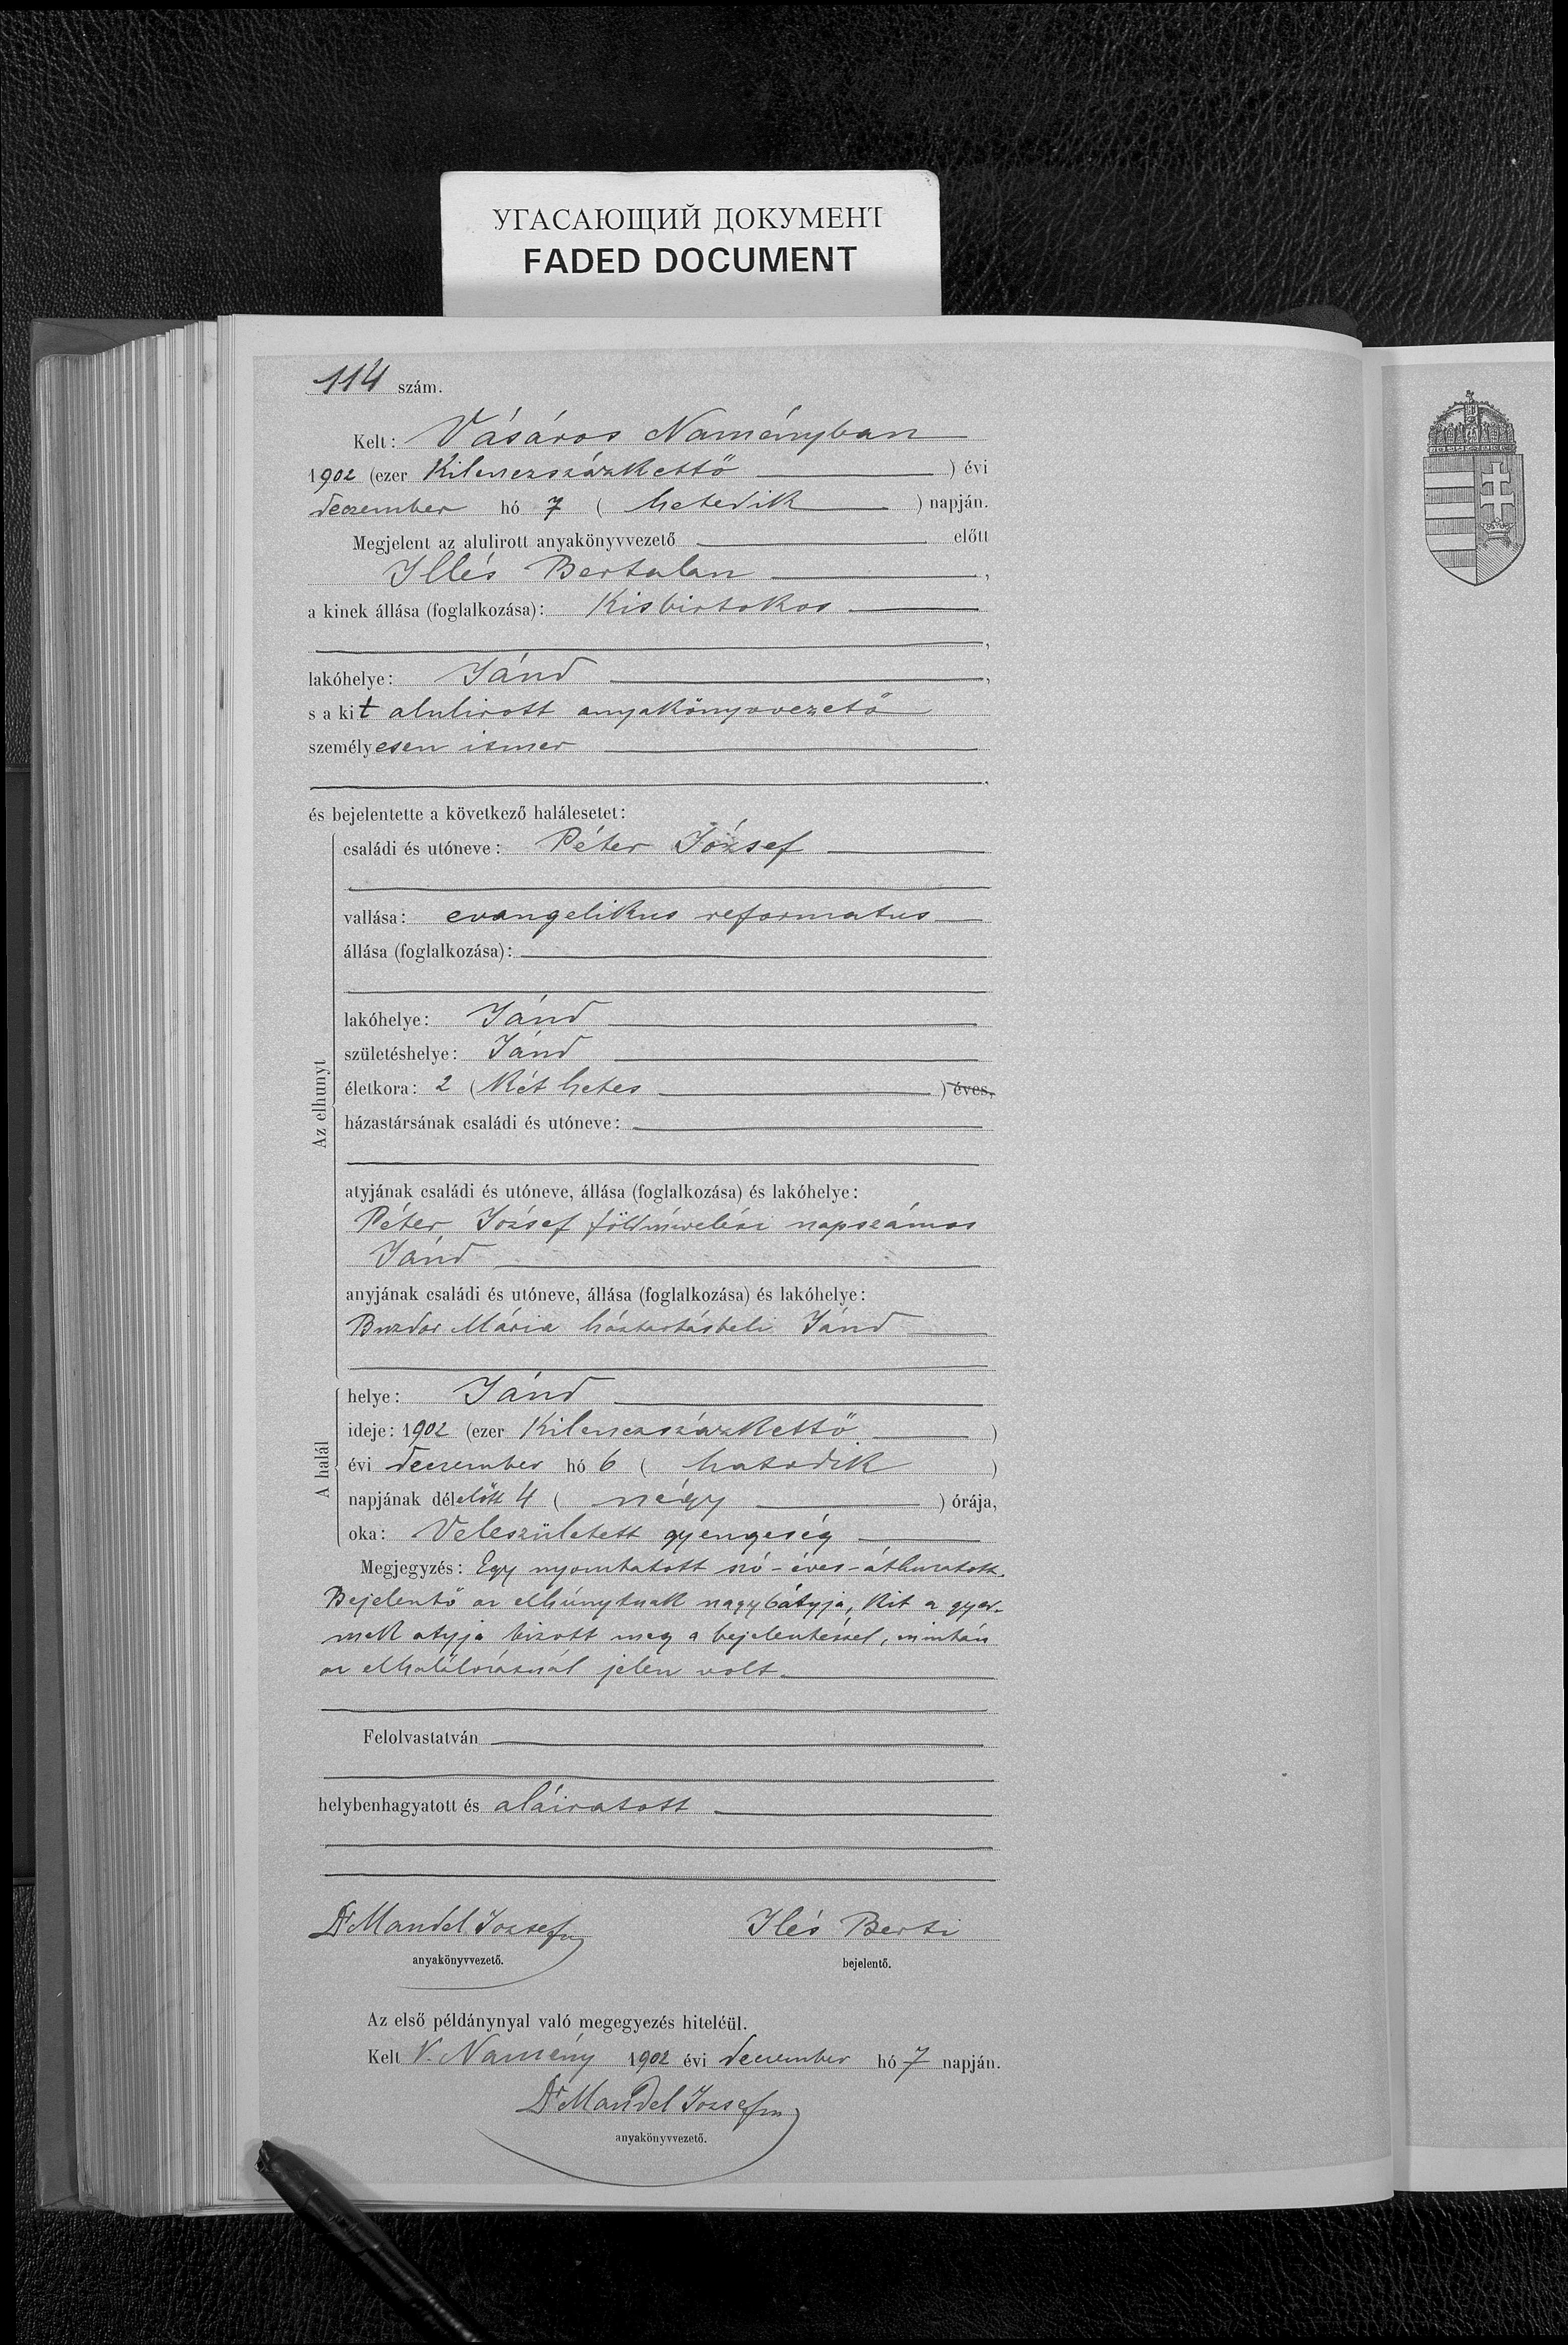 УГАСАЮЩИЙ ДОКУМЕНТ
FADED DOCUMENT
114 szám.
Kelt: Vásáros Naményban
1902 (ezer Kilenczszázkettő ) évi
deczember hó 7 ( hetedik ) napján.
Megjelent az alulirott anyakönyvvezető előtt
Illés Bertalan ,
a kinek állása (foglalkozása): Kisbirtokos
,
lakóhelye: Jánd ,
s a kit alulirott anyakönyvvezető
személyesen ismer
.
és bejelentette a következő halálesetet:
Az elhunyt
családi és utóneve: Péter József
vallása: evangelikus reformatus
állása (foglalkozása):
lakóhelye: Jánd
születéshelye: Jánd
életkora: 2 (Két hetes ) éves,
házastársának családi és utóneve:
atyjának családi és utóneve, állása (foglalkozása) és lakóhelye:
Péter József földmivelési napszámos
Jánd
anyjának családi és utóneve, állása (foglalkozása) és lakóhelye:
Buzdor Mária háztartásbeli Jánd
A halál
helye: Jánd
ideje: 1902 (ezer Kilenczszázkettő )
évi deczember hó 6 ( hatodik )
napjának délelőtt 4 ( négy ) órája,
oka: Veleszületett gyengeség
Megjegyzés: Egy nyomtatott szó - éves - áthuzatott.
Bejelentő az elhúnytnak nagybátyja, kit a gyer-
mek atyja bizott meg a bejelentéssel, mintán
az elhalálozásnál jelen volt.
Felolvastatván
helybenhagyatott és aláiratott
Dr Mandel József
anyakönyvvezető.
Ilés Berti
bejelentő.
Az első példánynyal való megegyezés hiteléül.
Kelt V. Namény 1902 évi deczember hó 7 napján.
Dr Mandel József
anyakönyvvezető.